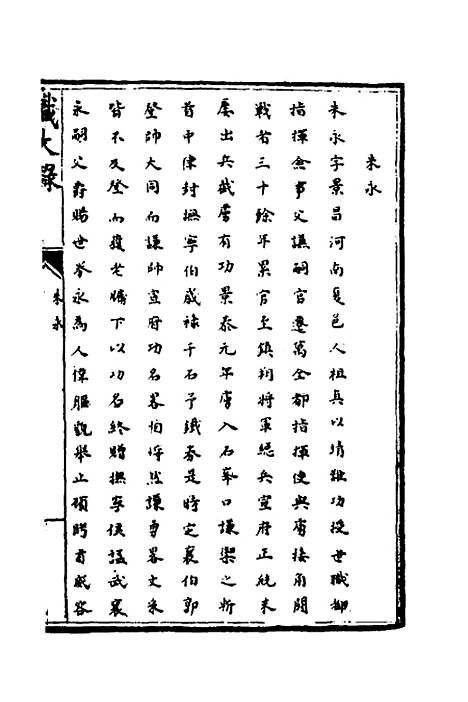 朱永
朱永字景昌河南夏邑人祖真以靖難功授世職都
指揮僉事父謙嗣官遷萬全都指揮使與虜接角鬪
戰者三十餘年累官至鎮朔將軍總兵宣府正統末
屢出兵截虜有功景泰元年虜入石峯口謙禦之斬
首中律封撫寧伯歲祿千石予鐵券是時定襄伯郭
登帥大同而謙帥宣府功名畧相將然謙勇畧文采
皆不及登而獲老牖下以功名終贈撫寧侯諡武襄
永嗣父爵賜世券永為人偉軀觀舉止碩盼有威容
朱永